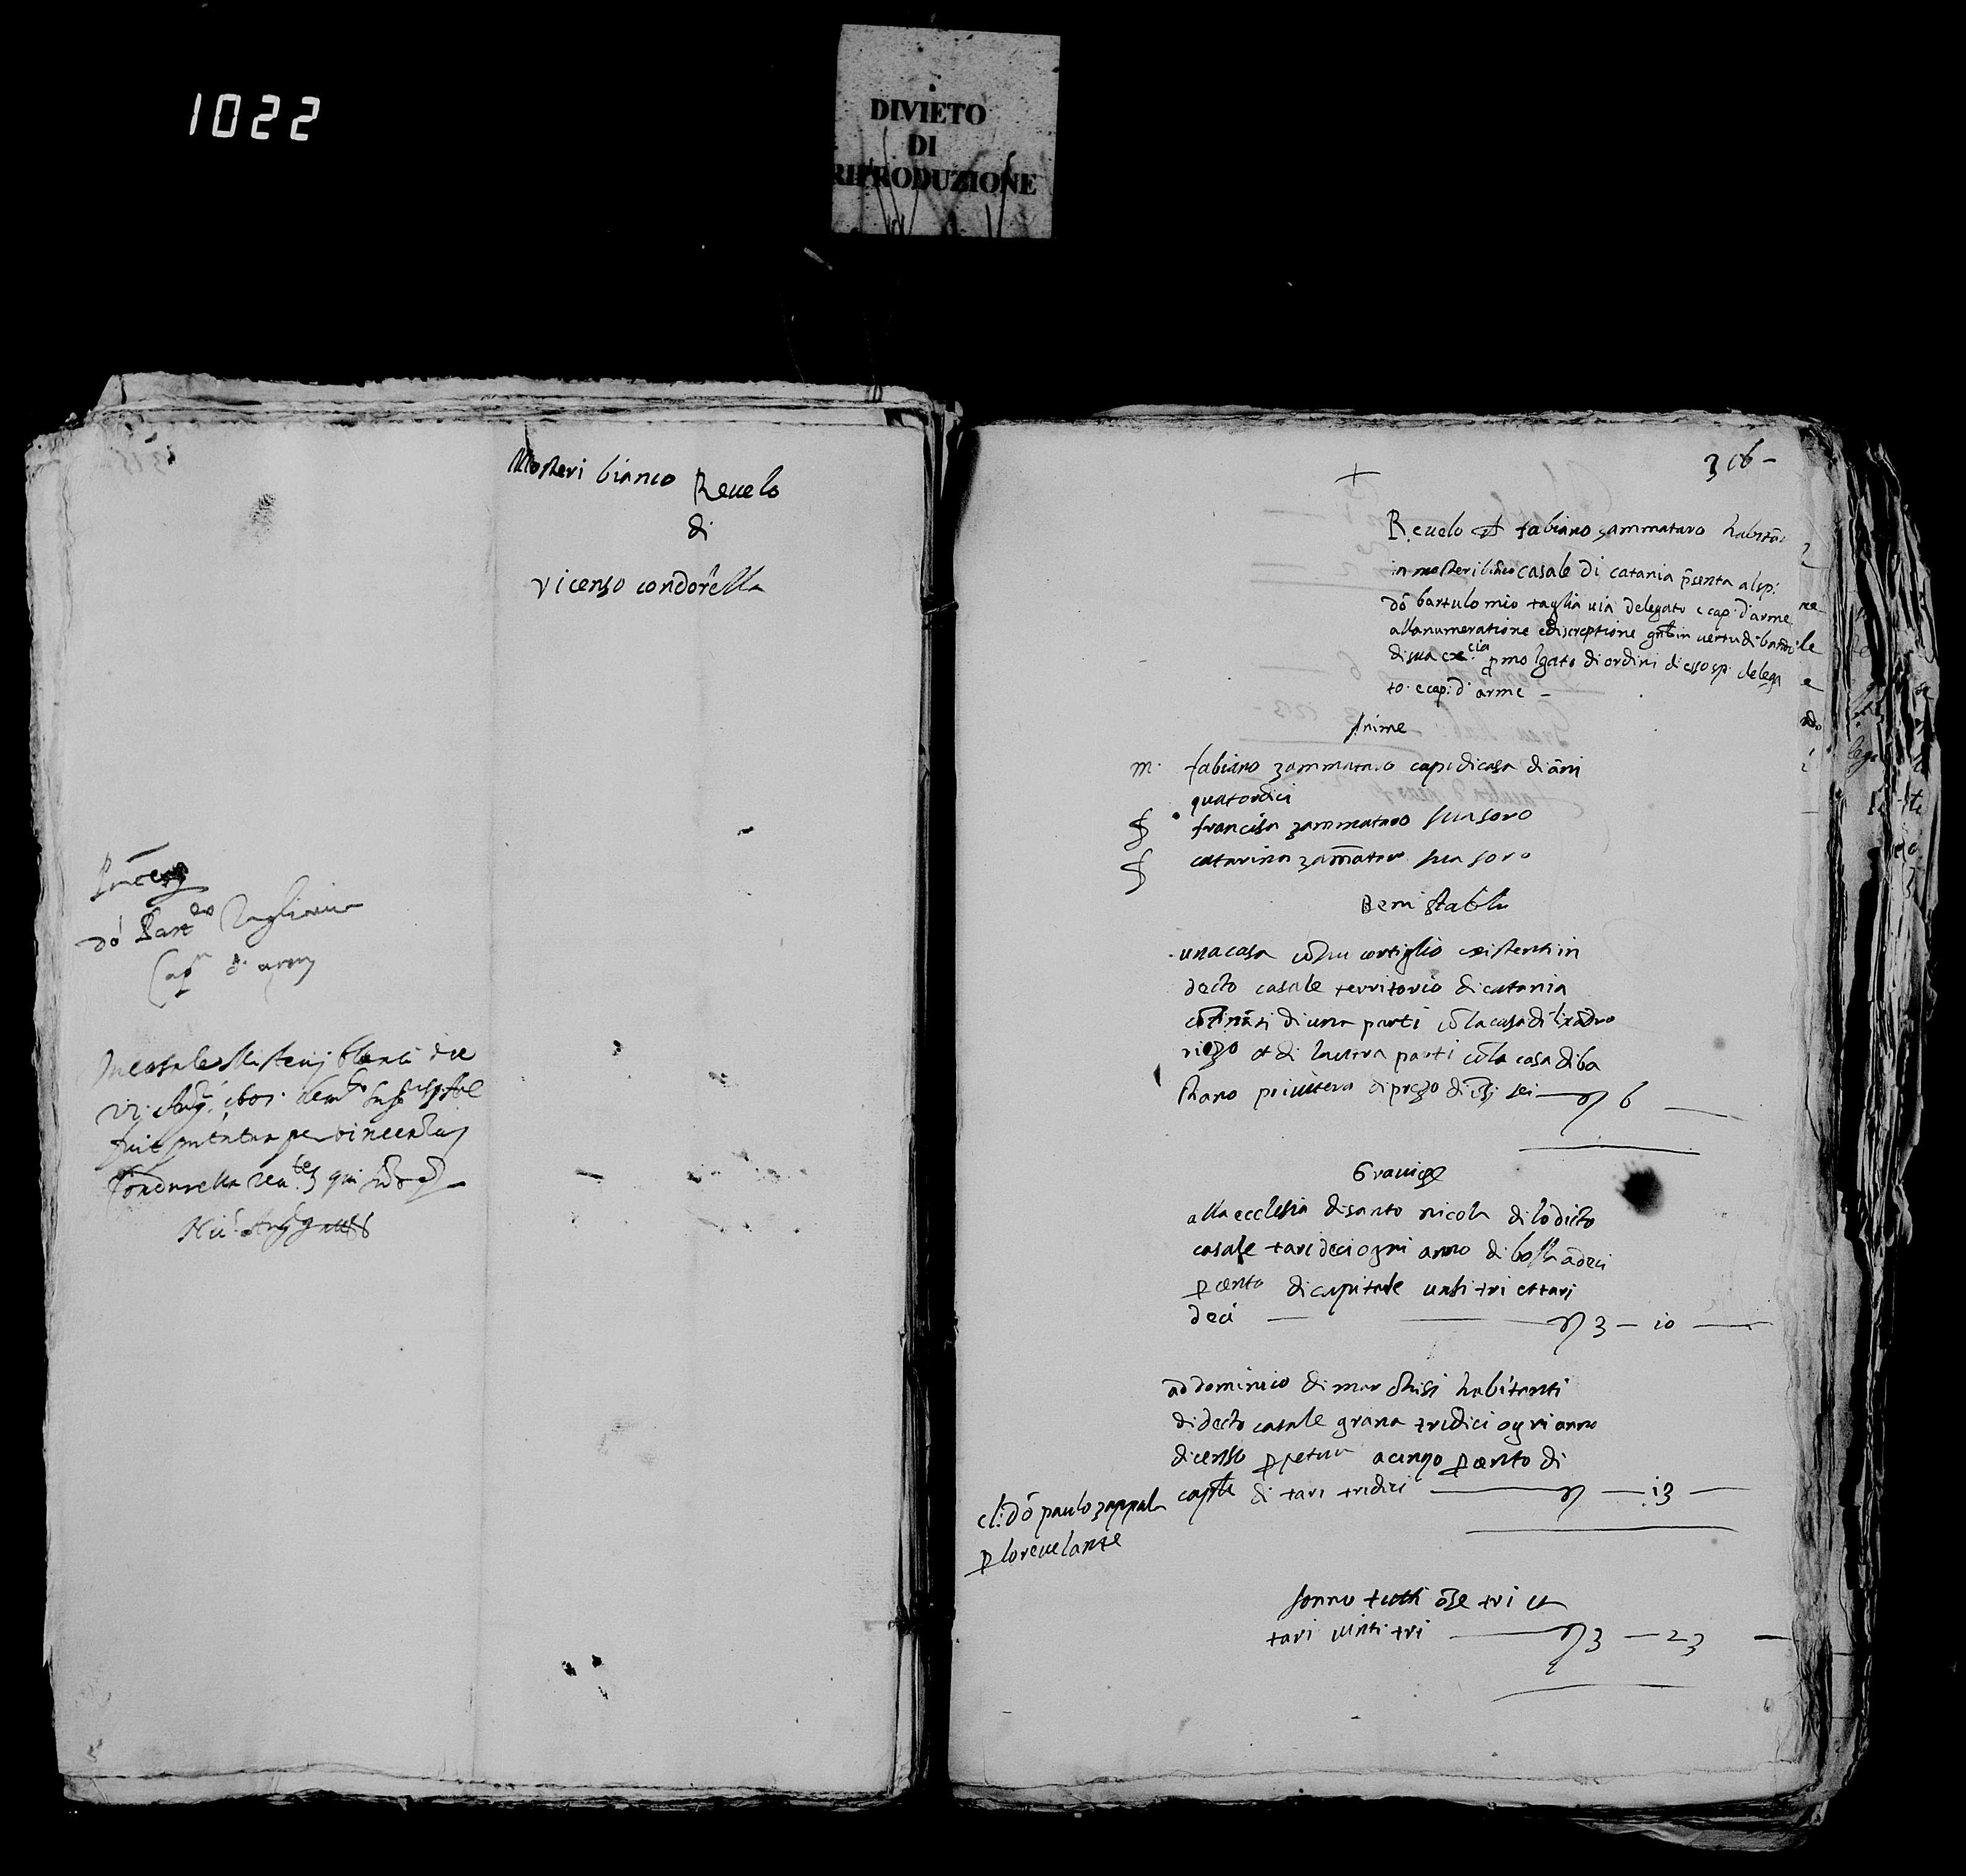 1022
DIVIETO
DI
RIPRODUZIONE
Mosteri bianco Revelo
di
vicenso condorella
dó Bart
Cap d'arm
In casale Misterij blanci die
fuit per vincentium
Condurella qui
316 -
+
Revelo di fabiano zammataro habitā
in mosteribiāco casale di catania p̄senta al sp:
dó bartulomio taglia via delegato e cap: d'arme
alla numeratione e discreptione in vertu di bando
di sua ecc.cia promolgato di ordini di esso sp: delega
to e cap: d'arme -
Anime
m. fabiano zammataro capo di casa di āni
quatordici
f francisca zammataro sua soro
f catarina zam̄ataro sua soro
Beni stabili
una casa cō su cortiglio existenti in
decto casale territorio di catania
di una parti cō la casa di lixādro
rizzo et di l'autra parti cō la casa di ba
stiano primavera di prezo di ōzi sei — 6 —
Gravize
alla ecclesia di santo nicola di lo dicto
casale tari deci ogni anno di bolla a deci
p cento di capitale unsi tri et tari
deci — 3 — 10 —
ad dominico di marchisi habitanti
di decto casale grana tridici ogni anno
di censo ppetuo a cinqo p cento di
capitle di tari tridici — 13 —
cl: dó paulo zappala
p lo revelante
sonno tutti ōze tri et
tari vinti tri — 3 — 23 —